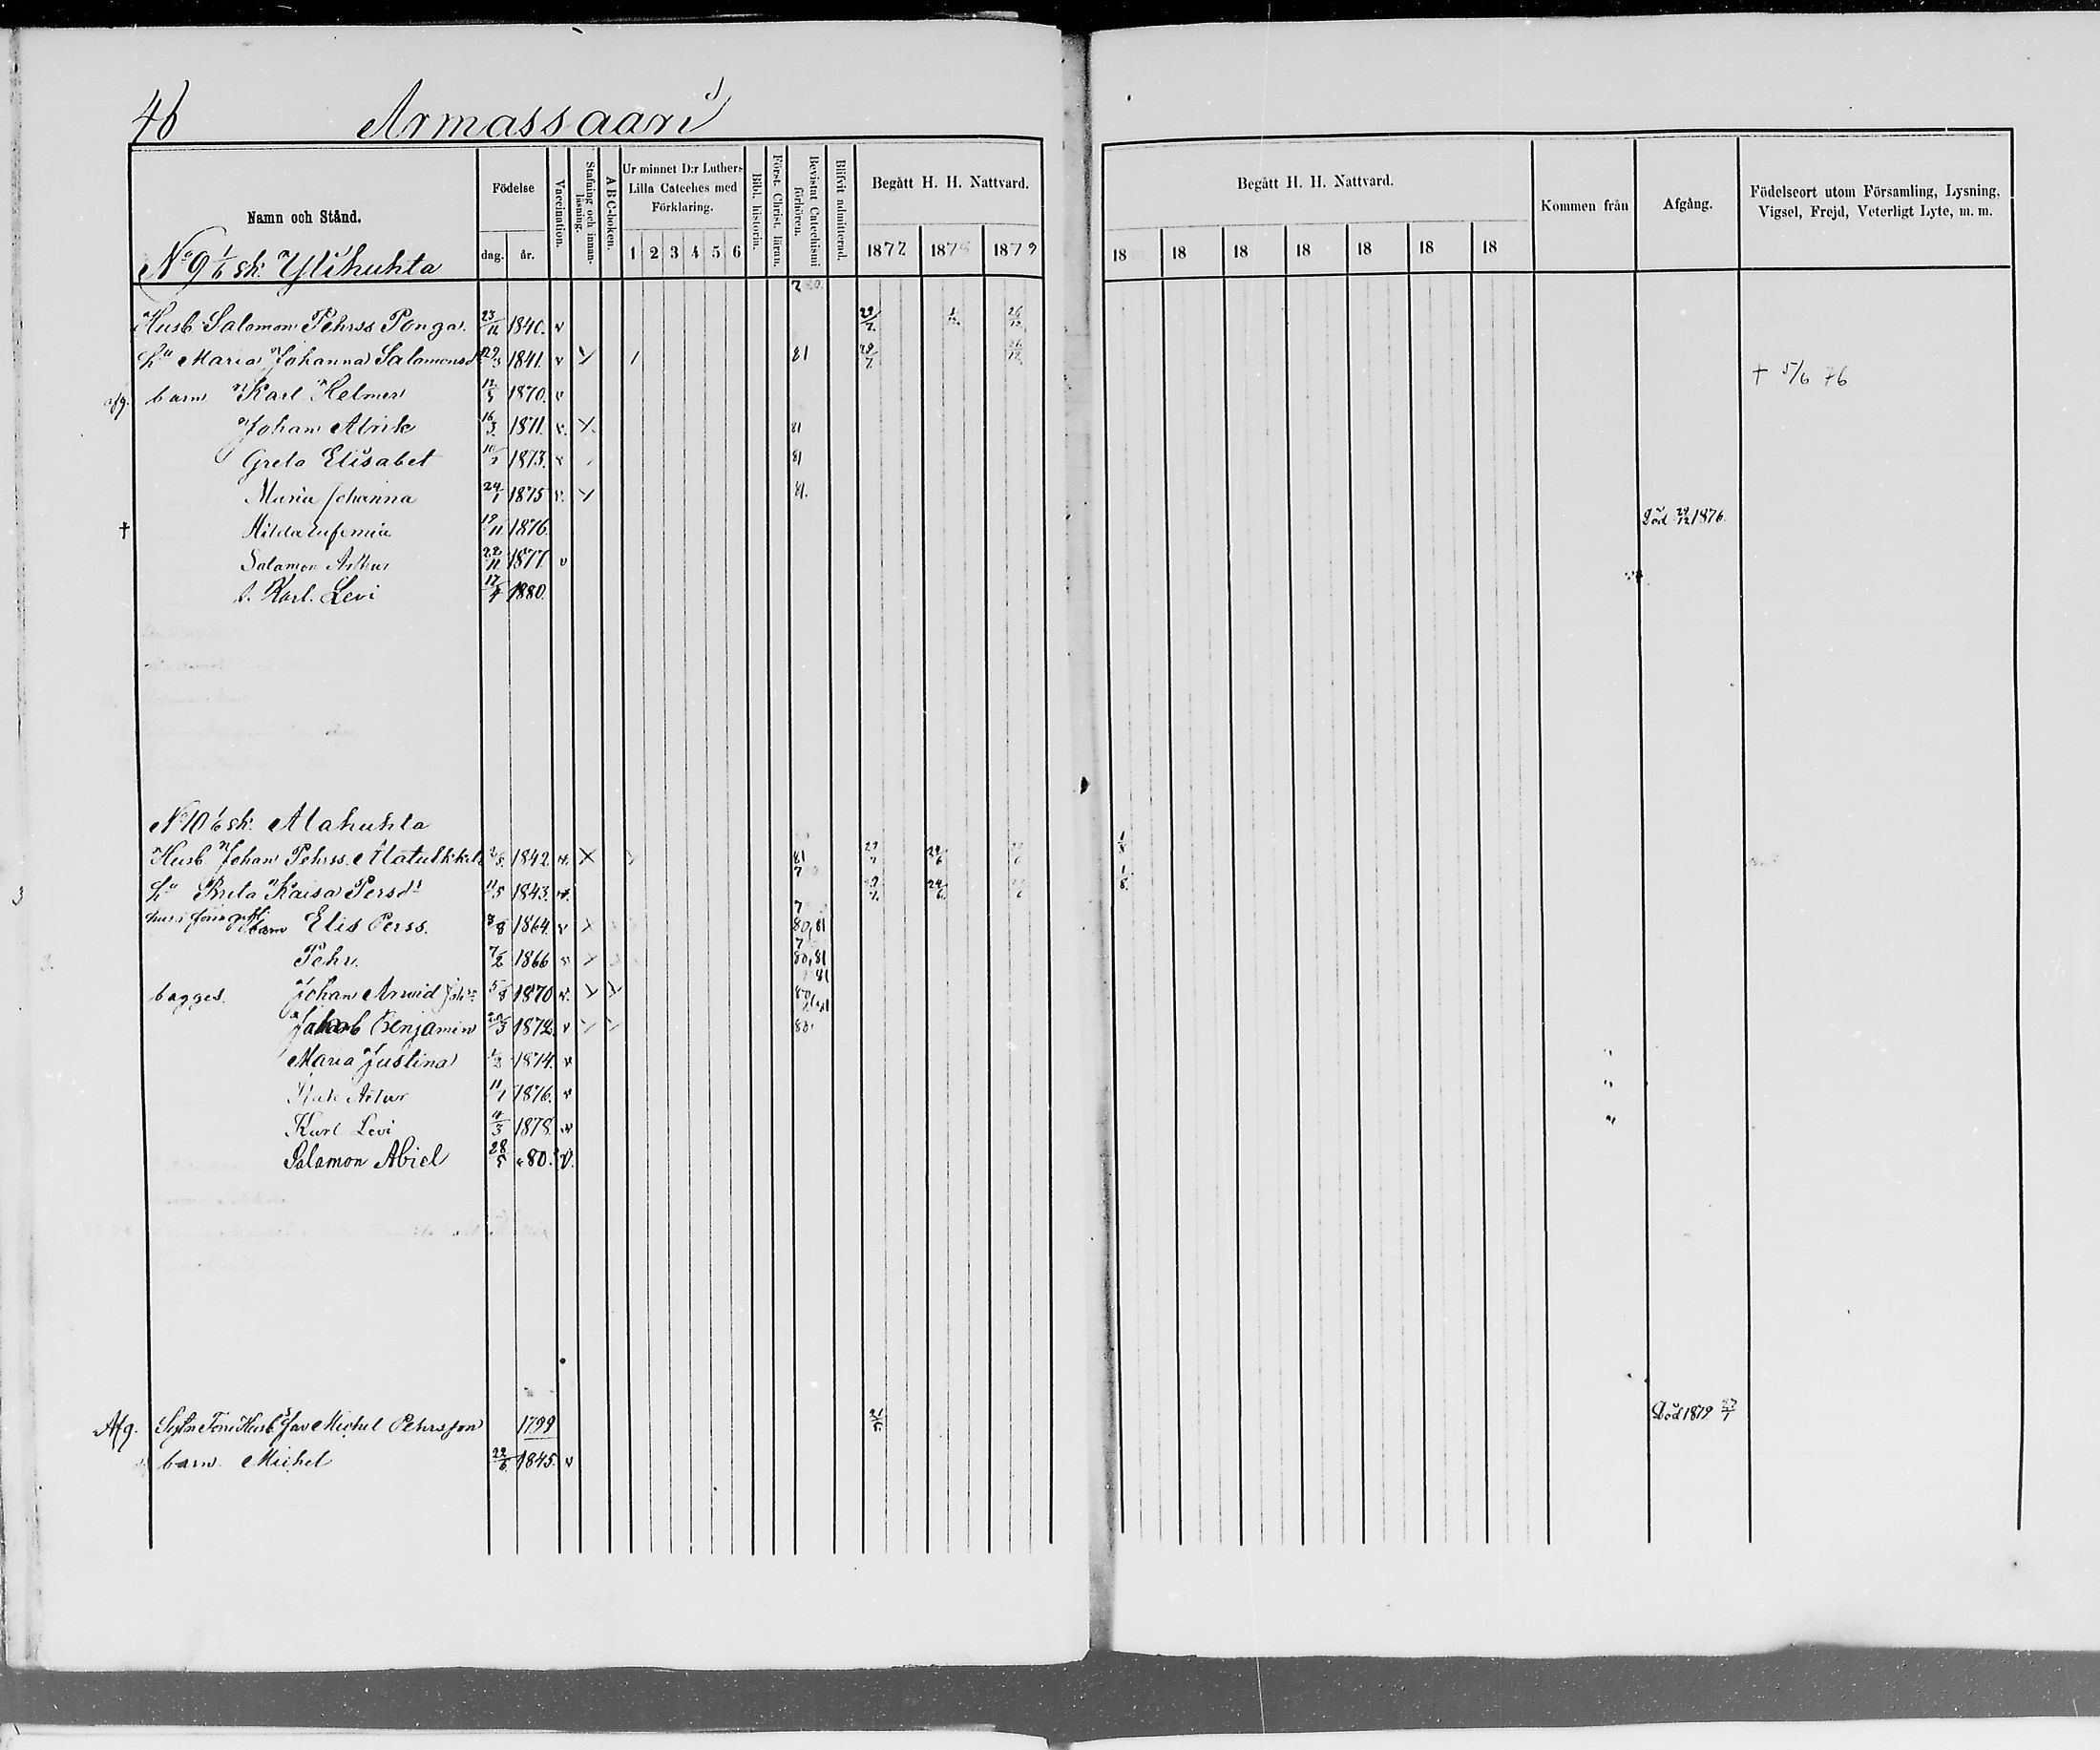 46 Armassaari
Namn och Stånd. Födelse dag. år. Vaccination. Stafning och innan-läsning. A B C-boken. Ur minnet D:r Luthers Lilla Cateches med Förklaring. 1 2 3 4 5 6 Bibl. historia. Först. Christ. läran. Bevistat Catechismi förhören. Blifvit admitterad. Begått H. H. Nattvard. 1872 1875 1879
Begått H. H. Nattvard. 18 18 18 18 18 18 18 Kommen från Afgång. Födelseort utom Församling, Lysning, Vigsel, Frejd, Veterligt Lyte, m. m.
No 9 1/6 sk. Ylikuhta
7
Husb Salomon Pehrss Ponga. 23/11 1840. v 29/7 1/12 26/12
hu Maria Johanna Salamonsd 29/3 1841. v X 1 81 29/7 26/12
afg. barn Karl Helmer 12/5 1870. v † 5/6 76
Johan Alrik 16/3 1871. v. X. 81
Greta Elisabet 10/3 1873. v 81
Maria Johanna 24/1 1875 v. X 81.
† Hilda Eufemia 19/11 1876. Död 29/12 1876.
Salamon Artur 22/11 1877. v
s. Karl. Levi 17/4 1880.
No 10 1/6 sk. Alakuhta
Husb Johan Pehrss. 2/5 1842. v. X 81 29/7 24/6 1/8
7
hu Brita Kaisa Persdr 11/5 1843. v. 29/7 24/6 1/8
7
barn Elis Perss. 3/8 1864. v X 80, 81
7
Pehr. 7/2 1866 v X 80, 81
81
bagges. Johan Arwid 5/8 1870 v. X X 80
Jakob Benjamin 20/3 1872. v X X 80.
Maria Justina 1/2 1874. v "
Artur 11/1 1876. v "
Karl Levi 11/3 1878. v "
Salamon Abiel 28/5 " 80. v.
Afg. Michel Pehrsson 1799 Död 1879 27/1
barn Michel 22/6 1845. v